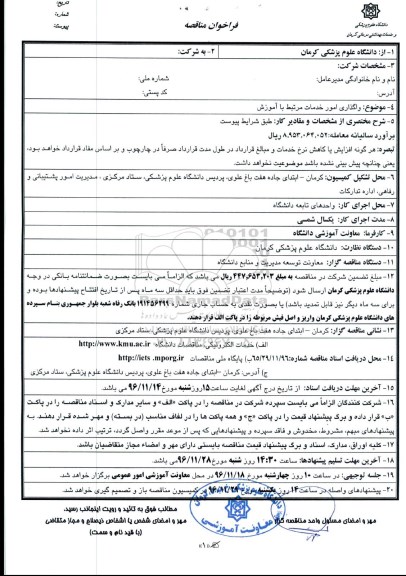 دانشگاه علوم پزشکی
و خدمات بهداشتی درمانی کرمان
فراخوان مناقصه
تاریخ:
شماره:
پیوست:
۱- از: دانشگاه علوم پزشکی کرمان
۲- به شرکت:
۳- مشخصات شرکت:
نام و نام خانوادگی مدیرعامل:
شماره ملی:
آدرس:
کد پستی:
۴- موضوع: واگذاری امور خدمات مرتبط با آموزش
۵- شرح مختصری از مشخصات و مقادیر کار: طبق شرایط پیوست
برآورد سالیانه معامله: ۸,۹۵۳,۰۶۴,۰۵۲ ریال
تبصره: هر گونه افزایش یا کاهش نرخ خدمات و مبالغ قرارداد در طول مدت قرارداد صرفاً در چارچوب و بر اساس مفاد قرارداد خواهد بود،
یعنی چنانچه پیش بینی نشده باشد موضوعیت نخواهد داشت.
۶- محل تشکیل کمیسیون: کرمان – ابتدای جاده هفت باغ علوی، پردیس دانشگاه علوم پزشکی، ستاد مرکزی ، مدیریت امور پشتیبانی و
رفاهی، اداره تدارکات
۷- محل اجرای کار: واحدهای تابعه دانشگاه
۸- مدت اجرای کار: یکسال شمسی
۹- کارفرما: معاونت آموزشی دانشگاه
۱۰- دستگاه نظارت: دانشگاه علوم پزشکی کرمان
۱۱- دستگاه مناقصه گزار: معاونت توسعه مدیریت و منابع دانشگاه
۱۲- مبلغ تضمین شرکت در مناقصه به مبلغ ۴۴۷,۶۵۳,۲۰۳ ریال می باشد که الزاماً می بایست بصورت ضمانتنامه بانکی در وجه
دانشگاه علوم پزشکی کرمان ارسال شود (توضیحاً مدت اعتبار تضمین فوق باید حداقل سه ماه پس از تاریخ افتتاح پیشنهادها بوده و
برای سه ماه دیگر نیز قابل تمدید باشد) یا بصورت نقدی به حساب جاری شماره ۱۹۱۴۲۵۶۴۹۹ بانک رفاه شعبه بلوار جمهوری بنام سپرده
های دانشگاه علوم پزشکی کرمان واریز و اصل فیش مربوطه را در پاکت الف قرار دهند.
۱۳- نشانی مناقصه گزار: کرمان – ابتدای جاده هفت باغ علوی، پردیس دانشگاه علوم پزشکی، ستاد مرکزی
الف) خدمات الکترونیکی، مناقصات دانشگاه http://www.kmu.ac.ir
۱۴- محل دریافت اسناد مناقصه شماره: ب) پایگاه ملی مناقصات http://iets.mporg.ir
ج) آدرس: کرمان –ابتدای جاده هفت باغ علوی، پردیس دانشگاه علوم پزشکی، ستاد مرکزی
۱۵- آخرین مهلت دریافت اسناد: از تاریخ درج آگهی لغایت ساعت ۱۵ روز شنبه مورخ ۹۶/۱۱/۱۴ می باشد.
۱۶- شرکت کنندگان الزاماً می بایست سپرده شرکت در مناقصه را در پاکت «الف» و سایر مدارک و اسناد مناقصه را در پاکت
«ب» قرار داده و برگ پیشنهاد قیمت را در پاکت «ج» و همه پاکت ها را در لفاف مناسب (در بسته) و مهر شده قرار دهند. به
پیشنهادهای مبهم، مشروط، مخدوش و فاقد سپرده و پیشنهادهایی که پس از موعد مقرر واصل گردد، ترتیب اثر داده نخواهد شد.
۱۷- کلیه اوراق، مدارک، اسناد و برگ پیشنهاد قیمت مناقصه بایستی دارای مهر و امضاء مجاز متقاضیان باشد.
۱۸- آخرین مهلت تسلیم پیشنهادها: ساعت ۱۴:۳۰ روز شنبه مورخ ۹۶/۱۱/۲۸ می باشد.
۱۹- جلسه توجیهی: در ساعت ۱۰ روز چهارشنبه مورخ ۹۶/۱۱/۱۸ در محل معاونت آموزشی امور عمومی برگزار خواهد شد.
۲۰- پیشنهادهای واصله در ساعت ۱۴ روز در کمیسیون مناقصه باز و تصمیم گیری خواهد شد.
مهر و امضای مسئول واحد مناقصه گزار
مطالب فوق به تائید و رویت اینجانب رسید.
مهر و امضای شخص یا اشخاص ذیصلاح و مجاز متقاضی
(با قید نام و سمت)
معاونت آموزشی